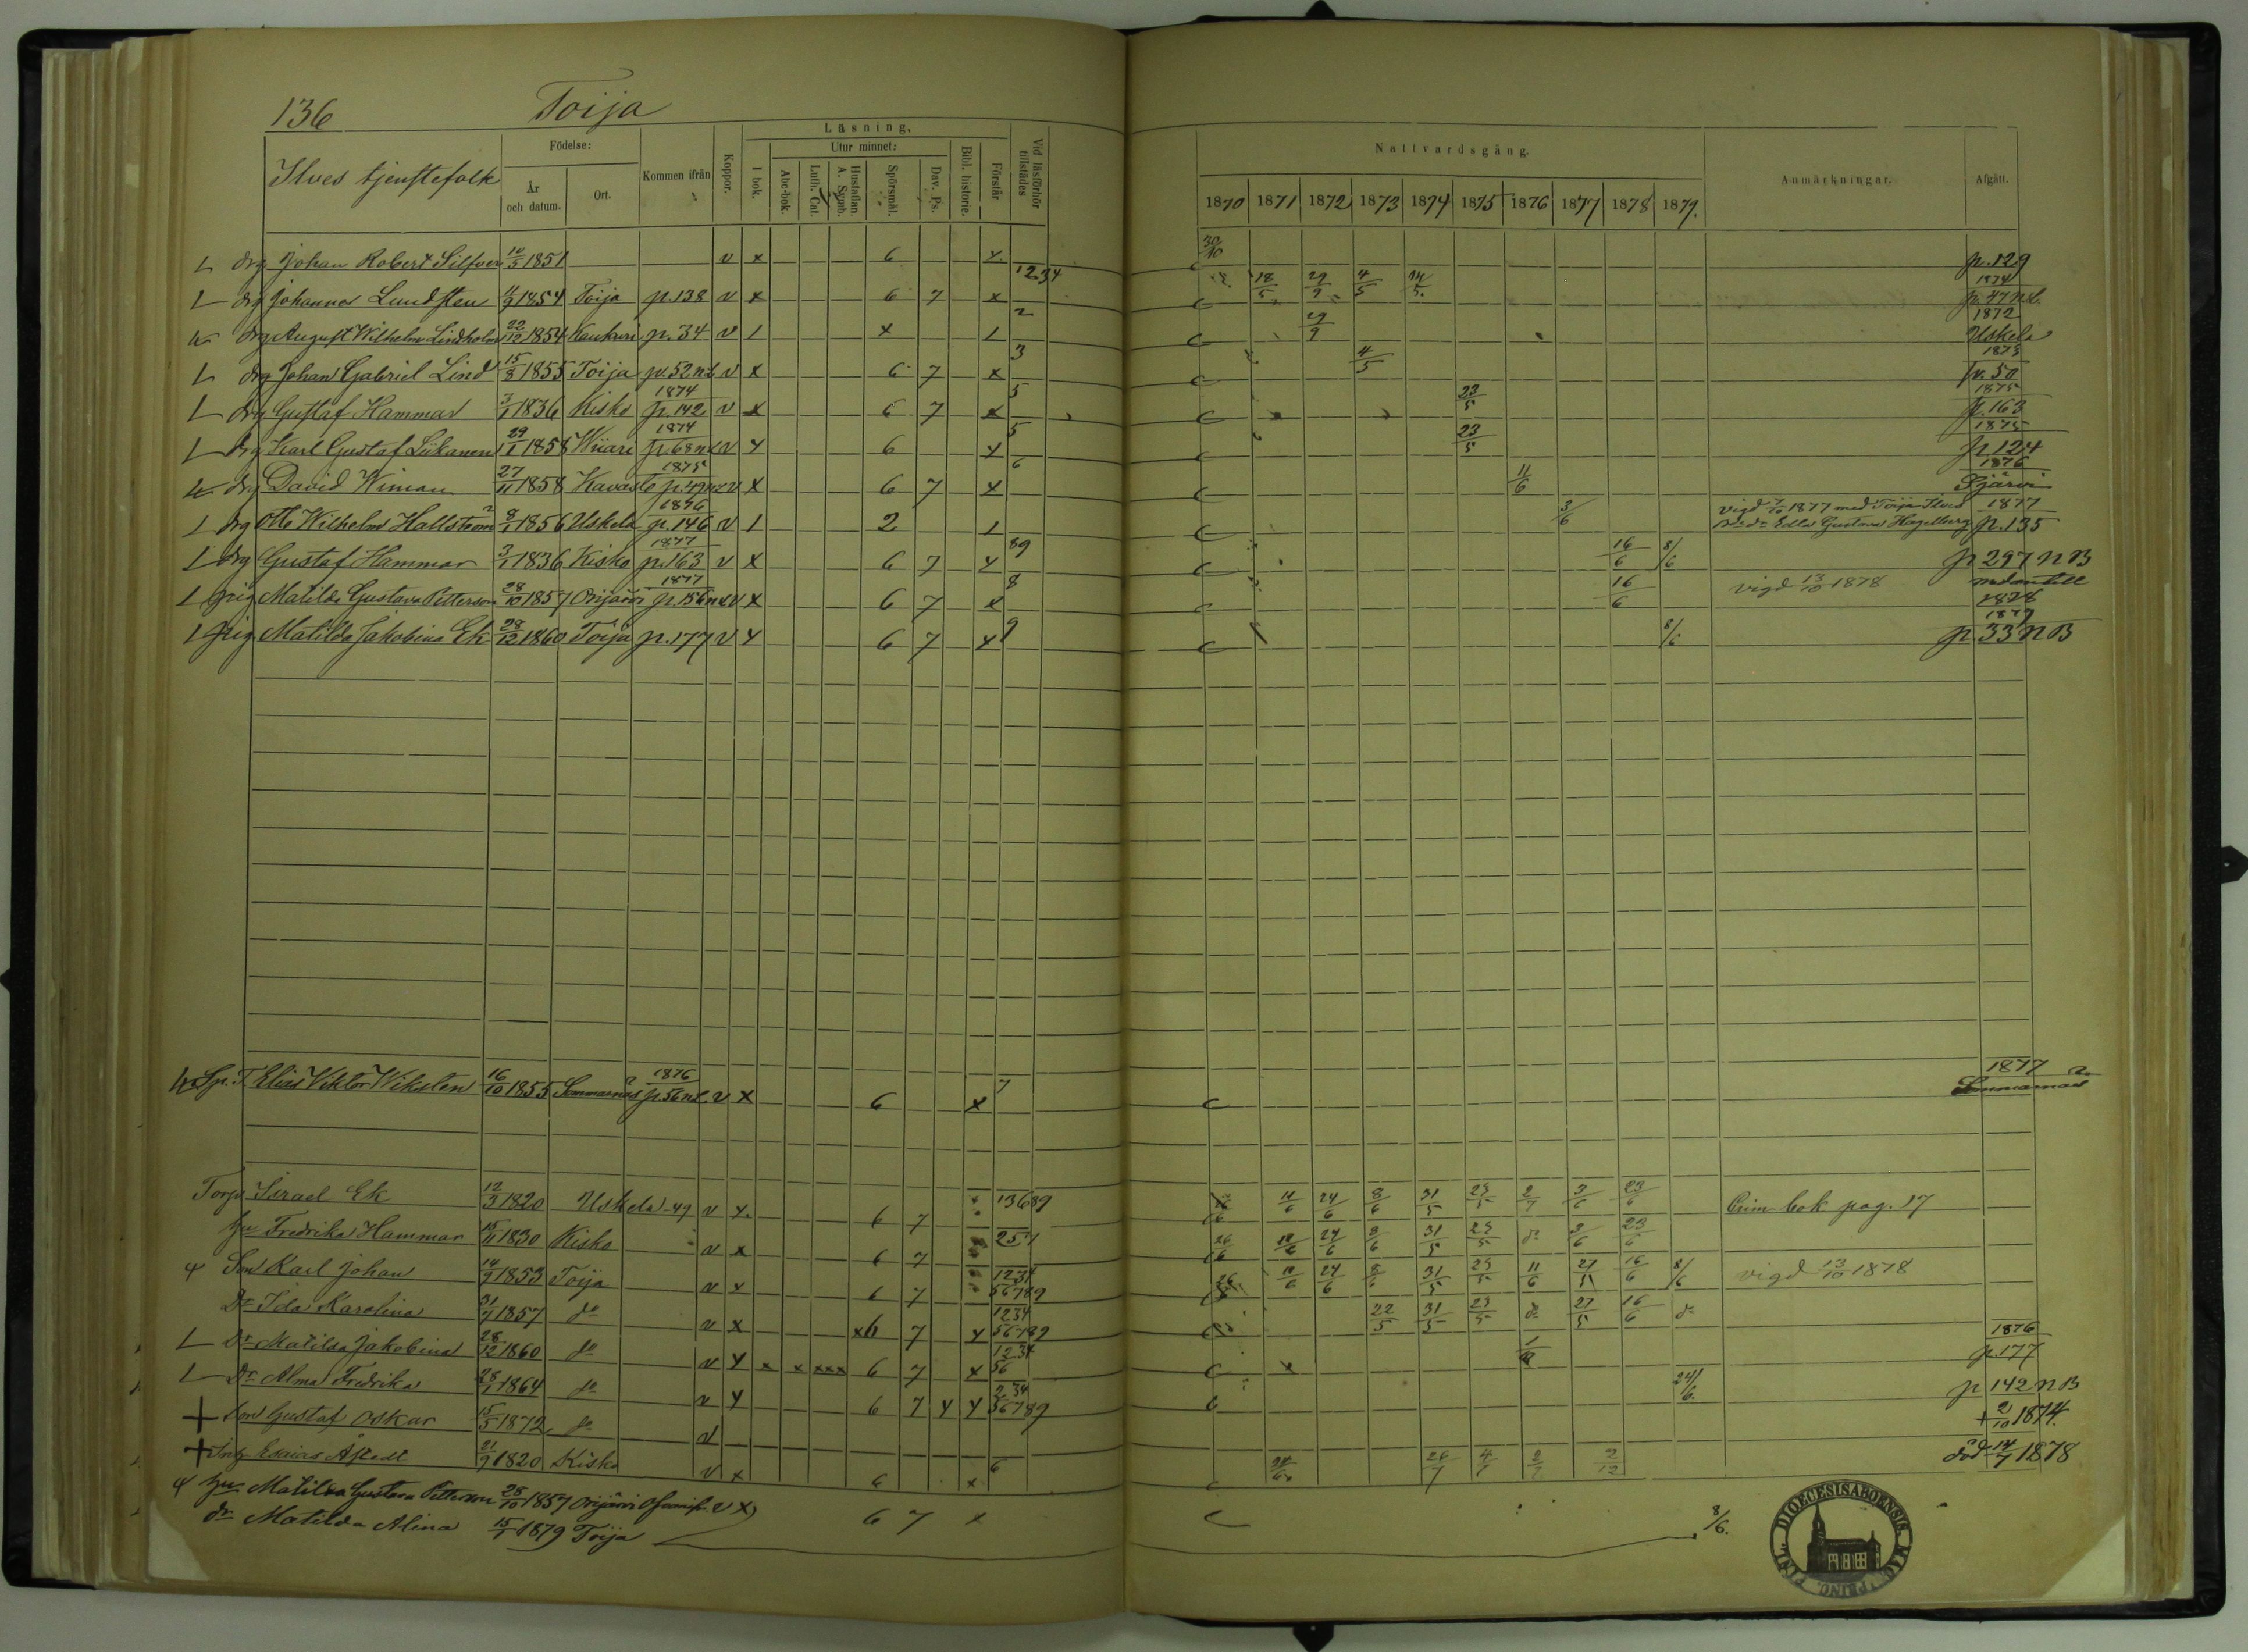 136 Toija
Ilves tjenstefolk
Födelse: År och datum. Ort. Kommen ifrån Koppor. Läsning. I bok. Utur minnet: Abc-bok. Luth. Cat. Hustaflan. A. Symb. Spörsmål. Dav. Ps. Bibl. historie. Förstår Vid läsförhör tillstädes
Nattvardsgång. 1870 1871 1872 1873 1874 1875 1876 1877 1878 1879. Anmärkningar. Afgått.
drg Johan Robert Silfver 1851 v x 6 x 30/10 p. 129
drg Johannes Lundsten 1854 Toija p. 138 v x 6 7 x 1234 29/9 4/5 1874 p. 47 n.b.
drg August Wilhelm Lindholm 22/12 1854 Kaukuri p. 34 v 1 x 1 2 29/9 1872 Uskela
drg Johan Gabriel Lind 15/8 1855 Toija p. 52 n.b. v x 6 7 x 3 4/5 1873 p. 50
drg Gustaf Hammar 3/1 1836 Kisko 1874 p. 142 v x 6 7 x 5 23/5 1875 p. 163
drg Karl Gustaf Liikanen 29/1 1858 Wiiari 1874 p. 68 v x 6 x 5 23/5 1875 p. 124
drg David Wiman 27/11 1858 Kavasto 1875 p. 49 v x 6 7 x 6 11/6 1876 Pjärvi
drg Otto Wilhelm Hallström 8/1 1856 Uskela 1876 p. 146 v 1 2 1 3/6 vigd 7/10 1877 med Toija Ilves Edla Gustava Hagelberg 1877 p. 135
drg Gustaf Hammar 3/1 1836 Kisko 1877 p. 163 v x 6 7 x 89 16/6 8/6 p 297 n B
pig Matilda Gustava Petterson 28/10 1857 Orijärvi 1877 p. 156 v x 6 7 x 8 16/6 vigd 13/10 1878 nedantill 1878
pig. Matilda Jakobina Ek 28/12 1860 Toija p. 177 v x 6 7 x 9 8/6 1879 p. 33 n B
Elias Viktor Wiksten 16/10 1855 Sommarnäs 1876 p. 56 v x 6 x 7 1877 Sommarnäs
Torp. Israel Ek 12/9 1820 Uskela -49 v x 6 7 13689 11/6 24/6 8/6 31/5 23/5 2/7 3/6 23/6 Crim. bok pag. 17
hu Fredrika Hammar 15/11 1830 Kisko v x 6 7 26/6 24/6 8/6 31/5 23/5 do 3/6 23/6
Son Karl Johan 14/9 1853 Toija v x 6 7 1234 56789 26/6 24/6 8/6 31/5 23/5 11/6 27/5 16/6 8/6 vigd 13/10 1878
Dr Ida Karolina 1857 do v x x6 7 x 1234 56789 22/5 31/5 23/5 do 27/5 16/6 do
Dr Matilda Jakobina 28/12 1860 do v x x x xxx 6 7 x 1234 56 1876 p. 177
Dr Alma Fredrika 28/1 1864 do v x 6 7 x x 234 56789 24/6 p 142 n B
Son Gustaf Oskar 15/5 1872 do v + 2/10 1874.
Esaias Åstedt 21/9 1820 Kisko v x 6 x 6 2/12 död 14/7 1878
hu Matilda Gustava Petterson 28/10 1857 Orijärvi v x 6 7 x 8/6.
dr Matilda Alina 15/1 1879 Toija
DIOECESIS ABOENSIS. MAG. PRINC. FINL.